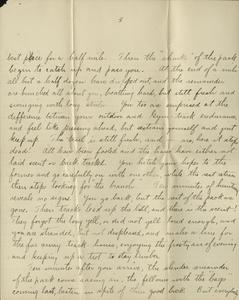 3
best place for a half mile. Then the "chunks" of the pack
begin to catch up and pass you. At the end of a mile
all but a half dozen have dropped out and the remainder
are bunched all about you, breathing hard, but still fresh and
swinging with long strides. You too are surprised at the
difference between your outdoor and legs track endurance
and feel like pressing ahead, but restrain yourself and just
keep up. The back is still fresh, and
dead! All have been fooled and the hares have either not
laid scent or back tracked. You hitch your hopes to the
forms and go carefully on with one while, the rest
then stop looking for the branch. Ten minutes of hunting
reveals no signs. You go back, but the rest of the pack are
gone. Their tracks lead up the hill, and this is the secret!
They forgot the long yell, or did not yell loud enough, and
you are stranded, but not displeased, and make a line for
the far away track house, enjoying the frosty air of evening
and keeping up a trot to stay limber.
Ten minutes after you arrive, the slender remainder
of the pack come racing in, the fellows with the bags
coming last, beaten in spite of their good lead. But everyone